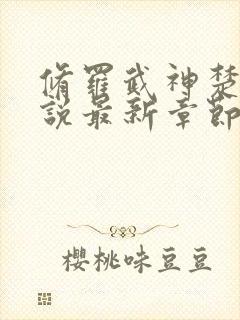 脩羅武神楚
說最新章節
櫻桃味豆豆